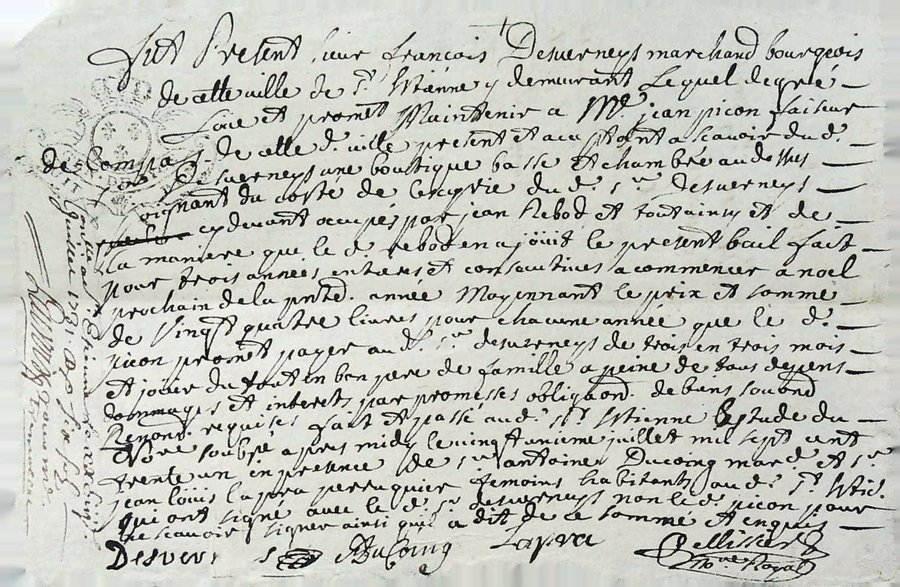 Fut Present sieur françois Desverneys marchand bourgeois
de cette ville de St. Estienne y demeurant Lequel de gré
Loue et promet Maintenir a Me. jean picon faiseur
de Compas de cette d. ville present et acceptant a scavoir du d.
sr. Desverneys une boutique basse et chambre au dessus
joignant du costé de du d. sr. desverneys
cy devant occupés par jean Rebod et tout ainsy et de
la maniere que le d. rebod en a jouit le present bail fait
pour trois années entieres et consecutives a commencer a noel
prochain de la pnte. année Moyennant le prix et somme
de Vingt quatre livres pour chacune année que le d.
picon promet payer au d. sr. desverneys de trois en trois mois
et jouir du tout en bon pere de famille a peine de tous depens
dommages et interets par promesses obligaon. de biens
Renon. requises fait et passé au d. St. Estienne Estude du
nore soubsé apres midy le cinquieme juillet mil sept cent
trente un en presence de sr. antoine Ducoing mard. et sr.
jean louis lapra perruquier temoins habitants au d. St. Esti.
qui ont signé avec le d. sr. desverneys non le d. picon pour
ne scavoir signer ainsi quil a dit de ce sommé et enquis
Desverneys ADuCoing Lapra Pellissier
nore Royal
a St Estienne
juillet 1731